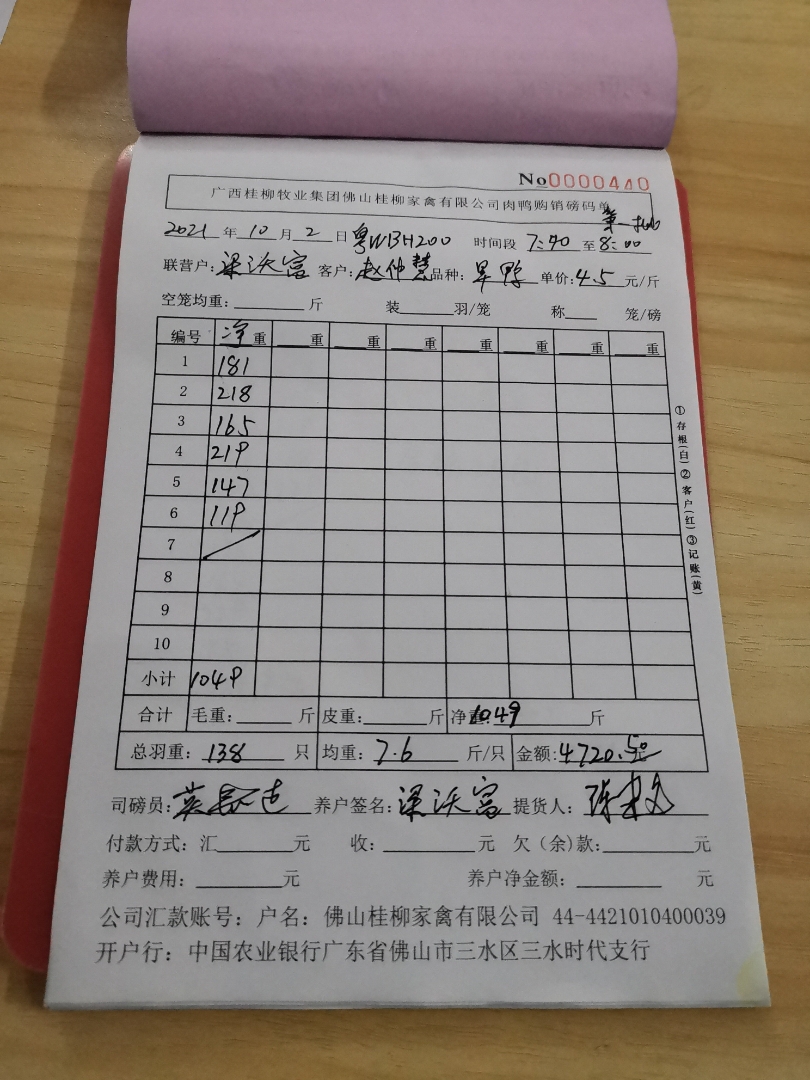 No0000440
广西桂柳牧业集团佛山桂柳家禽有限公司肉鸭购销磅码单
2021 年 10 月 2 日 粤WBH200 时间段 7:40 至 8:00
联营户: 梁沃富 客户: 赵仲慧 品种: 单价: 4.5 元/斤
空笼均重: 斤 装 羽/笼 称 笼/磅
编号 净重 重 重 重 重 重 重 重
1 181
2 218
3 165
4 219
5 147
6 119
7
8
9
10
小计 1049
①存根(白)②客户(红)③记账(黄)
合计 毛重: 斤 皮重: 斤 净重: 1049 斤
总羽重: 138 只 均重: 7.6 斤/只 金额: 4720.50
司磅员: 养户签名: 梁沃富 提货人:
付款方式: 汇 元 收: 元 欠(余)款: 元
养户费用: 元 养户净金额: 元
公司汇款账号: 户名: 佛山桂柳家禽有限公司 44-4421010400039
开户行: 中国农业银行广东省佛山市三水区三水时代支行